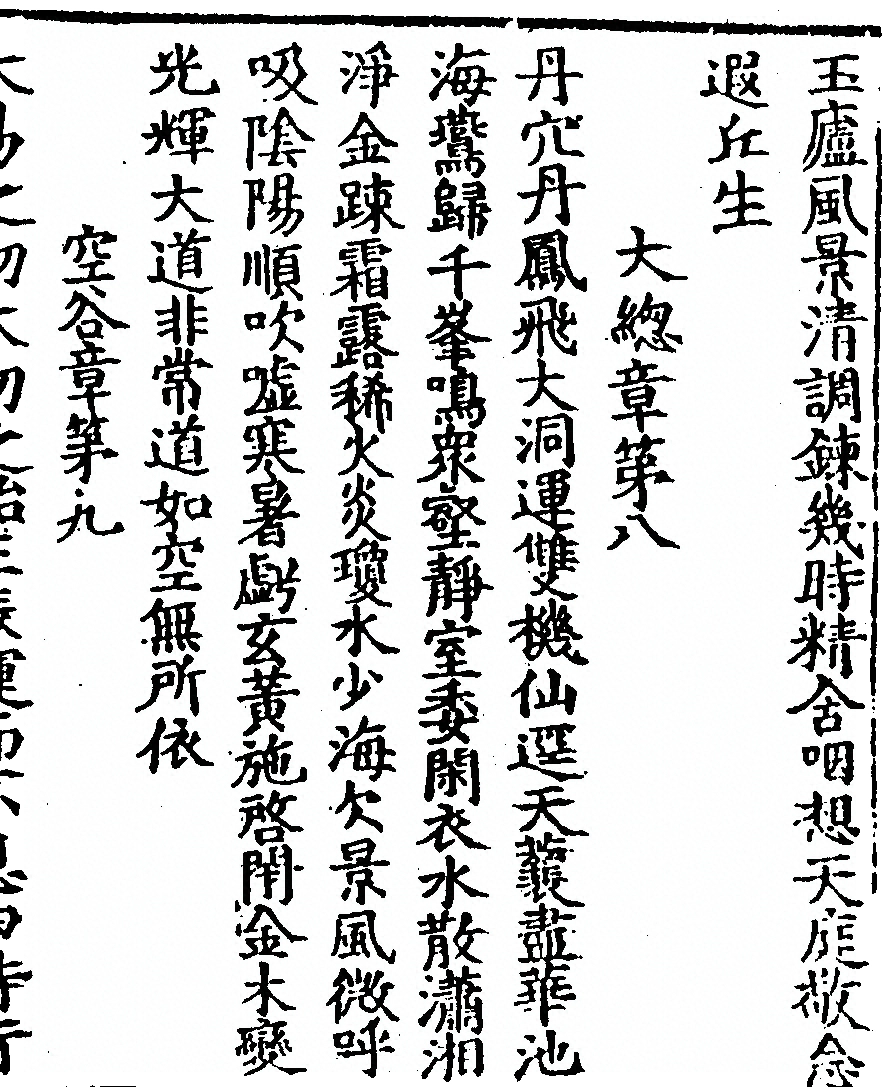 玉廬風景清調鍊幾時精含咽想天庭敬念
遐丘生
大總章第八
丹穴丹鳳飛大洞運雙機仙逕天蘂盡華池
海鸞歸千峯鳴衆壑靜室委閑衣水散瀟湘
淨金踈霜露稀火炎瓊水少海欠景風微呼
吸陰陽順吹噓寒暑虧玄黃施啓閉金木變
光輝大道非常道如空無所依
空谷章第九